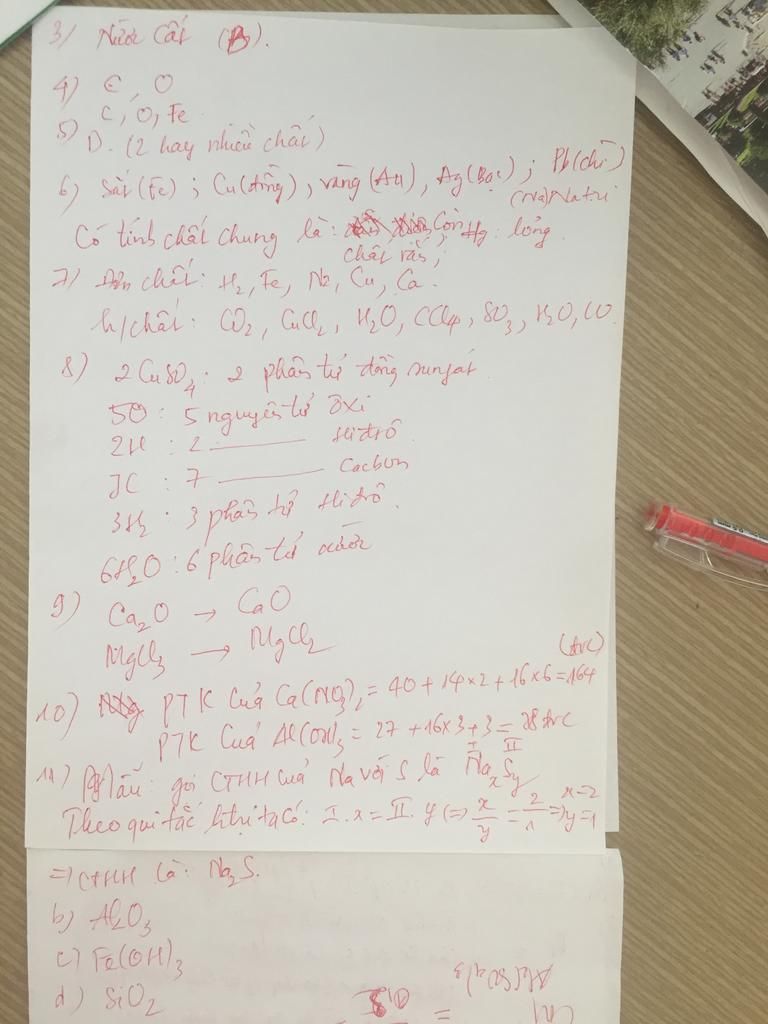 3) Nước Cất (B).
4) C, O
C, O, Fe
5) D. (2 hay nhiều chất)
6) Sắt (Fe) ; Cu (đồng), vàng (Au), Ag (Bạc) ; Pb (chì)
(Na) Natri
Có tính chất chung là: Còn Hg: lỏng.
chất rắn;
7) Đơn chất: H2, Fe, N2, Cu, Ca.
h/chất: CO2, CuCl2, H2O, CCl4, SO3, H2O, CO
8) 2CuSO4: 2 phân tử đồng sunfat
5O : 5 nguyên tử ôxi
2H : 2 —— Hiđrô
7C : 7 —— Cacbon
3H2 : 3 phân tử Hiđrô.
6H2O : 6 phân tử nước
9) Ca2O → CaO
MgCl3 → MgCl2
(đvC)
10) PTK của Ca(NO3)2 = 40 + 14×2 + 16×6 = 164
PTK Của Al(OH)3 = 27 + 16×3 + 3 = 78 đvC
I II
11) gọi CTHH của Na với S là NaxSy
Theo qui tắc h.trị ta có: I.x = II.y => x/y = 2/1 => x=2 y=1
=> CTHH là: Na2S.
b) Al2O3
c) Fe(OH)3
d) SiO2